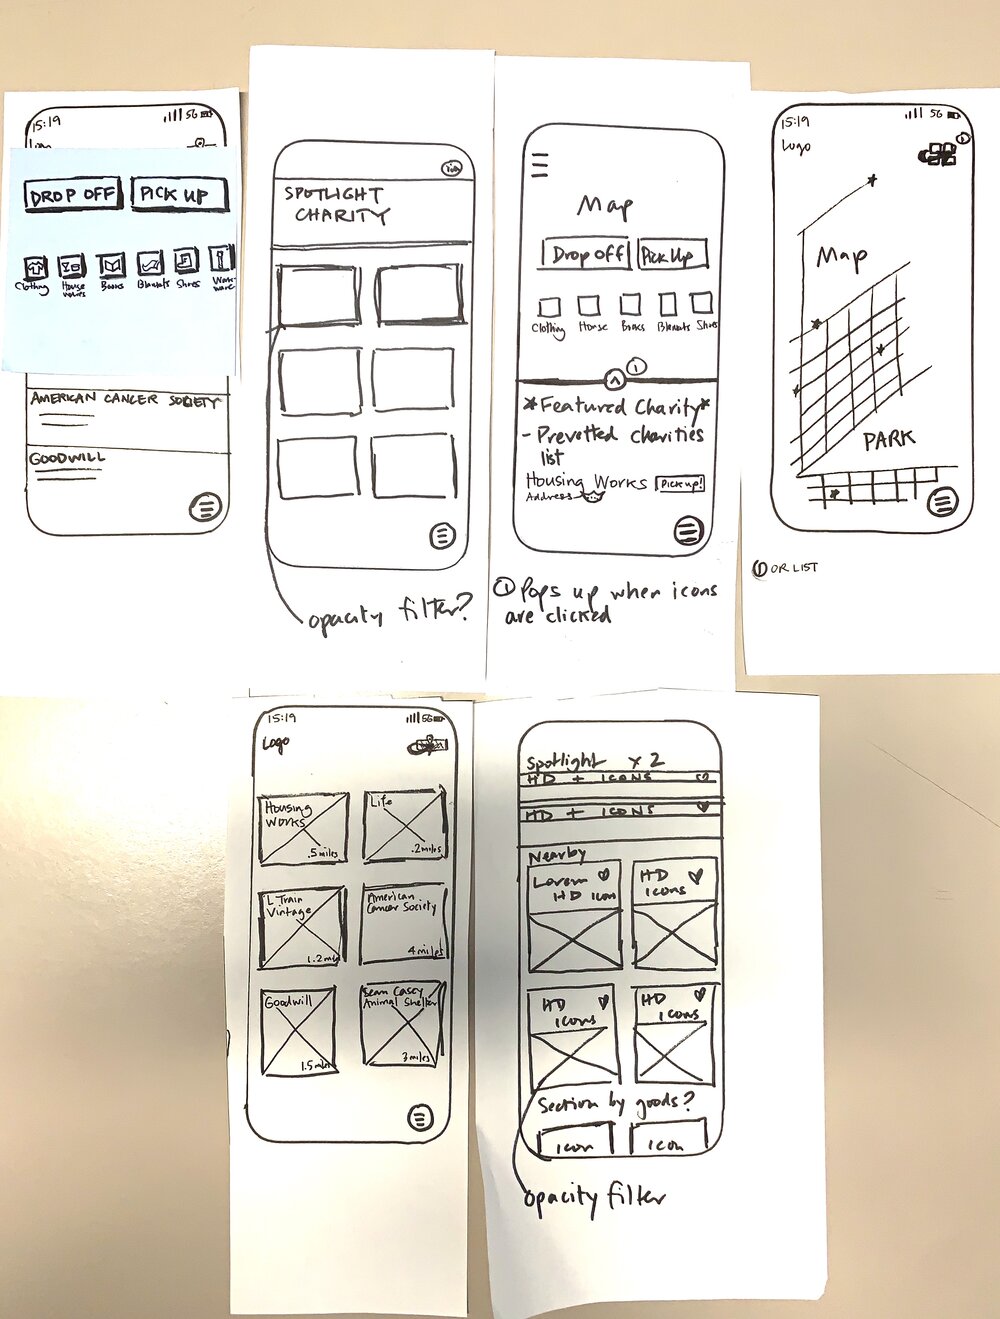 15:19 5G
Logo
DROP OFF PICK UP
Clothing House wares Books Blankets Shoes Work wear
AMERICAN CANCER SOCIETY
GOODWILL
SPOTLIGHT
CHARITY
opacity filter?
Map
Drop off Pick Up
Clothing House Books Blankets Shoes
1
*Featured Charity*
- Prevetted charities
list
Housing Works Pick up!
Address
1 Pops up when icons
are clicked
15:19 5G
Logo
1
Map
PARK
1 OR LIST
15:19 5G
Logo
Housing
Works
.5 miles
Life
.2 miles
L Train
Vintage
1.2 miles
American
Cancer Society
4 miles
Goodwill
1.5 miles
Sean Casey
Animal Shelter
3 miles
Spotlight x 2
HD + ICONS
HD + ICONS
Nearby
Lorem
HD icon
HD
icons
HD
icons
HD
icons
Section by goods?
icon icon
opacity filter